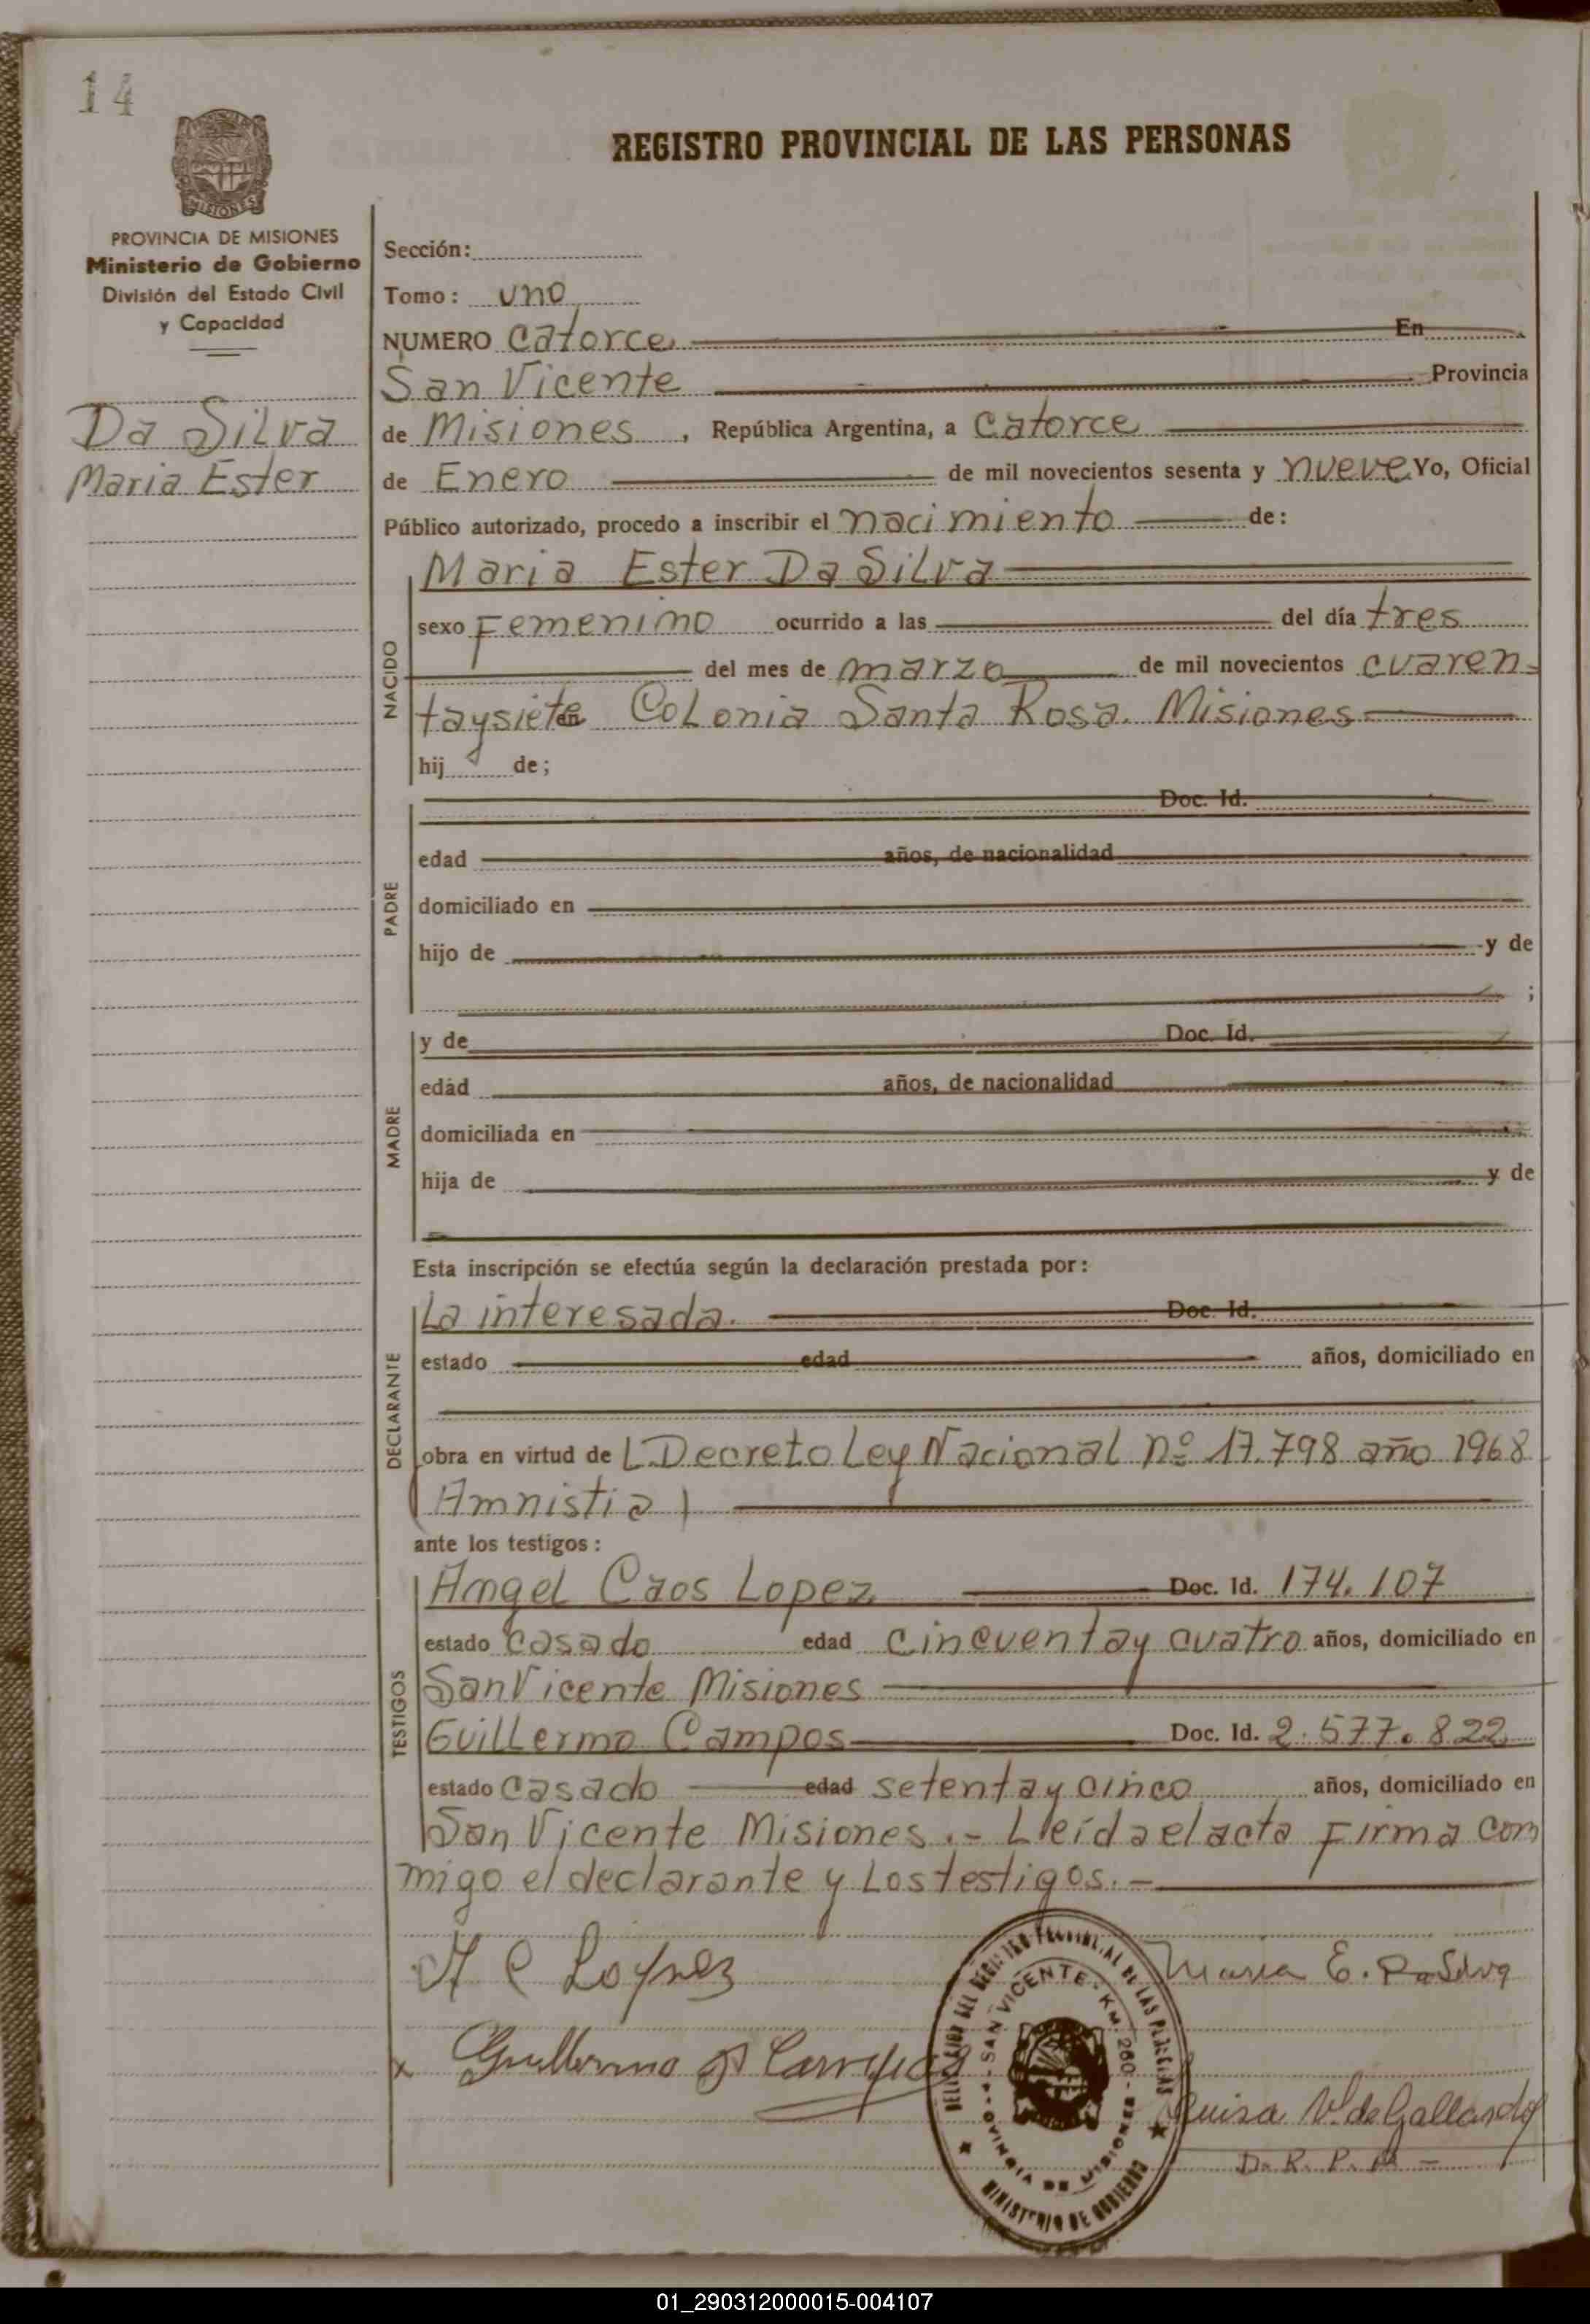 14
MISIONES
PROVINCIA DE MISIONES
Ministerio de Gobierno
División del Estado Civil
y Capacidad
Da Silva
Maria Ester
REGISTRO PROVINCIAL DE LAS PERSONAS
Sección:
Tomo: uno
NUMERO catorce En
San Vicente Provincia
de Misiones, República Argentina, a catorce
de Enero de mil novecientos sesenta y nueve Yo, Oficial
Público autorizado, procedo a inscribir el nacimiento de:
NACIDO
Maria Ester Da Silva
sexo Femenino ocurrido a las del día tres
del mes de marzo de mil novecientos cuaren-
taysiete en Colonia Santa Rosa. Misiones
hij de;
PADRE
Doc. Id.
edad años, de nacionalidad
domiciliado en
hijo de y de
;
MADRE
y de Doc. Id.
edad años, de nacionalidad
domiciliada en
hija de y de
Esta inscripción se efectúa según la declaración prestada por:
DECLARANTE
La interesada. Doc. Id.
estado edad años, domiciliado en
obra en virtud de L Decreto Ley Nacional nº 17.798 año 1968
(Amnistia)
ante los testigos:
TESTIGOS
Angel Caos Lopez Doc. Id. 174.107
estado casado edad cincuentay cuatro años, domiciliado en
San Vicente Misiones
Guillermo Campos Doc. Id. 2.577.822
estado casado edad setentay cinco años, domiciliado en
San Vicente Misiones.- Leída el acta Firma con
migo el declarante y Los testigos.-
A C Lopez
Maria E. Da Silva
Guillermo Campos
Luisa V. de Gallardo
D. R. P. P. -
DEL REGISTRO PROVINCIAL DE LAS PERSONAS
SAN VICENTE - KM 260 -
PROVINCIA DE MISIONES
MINISTERIO DE GOBIERNO
01_290312000015-004107